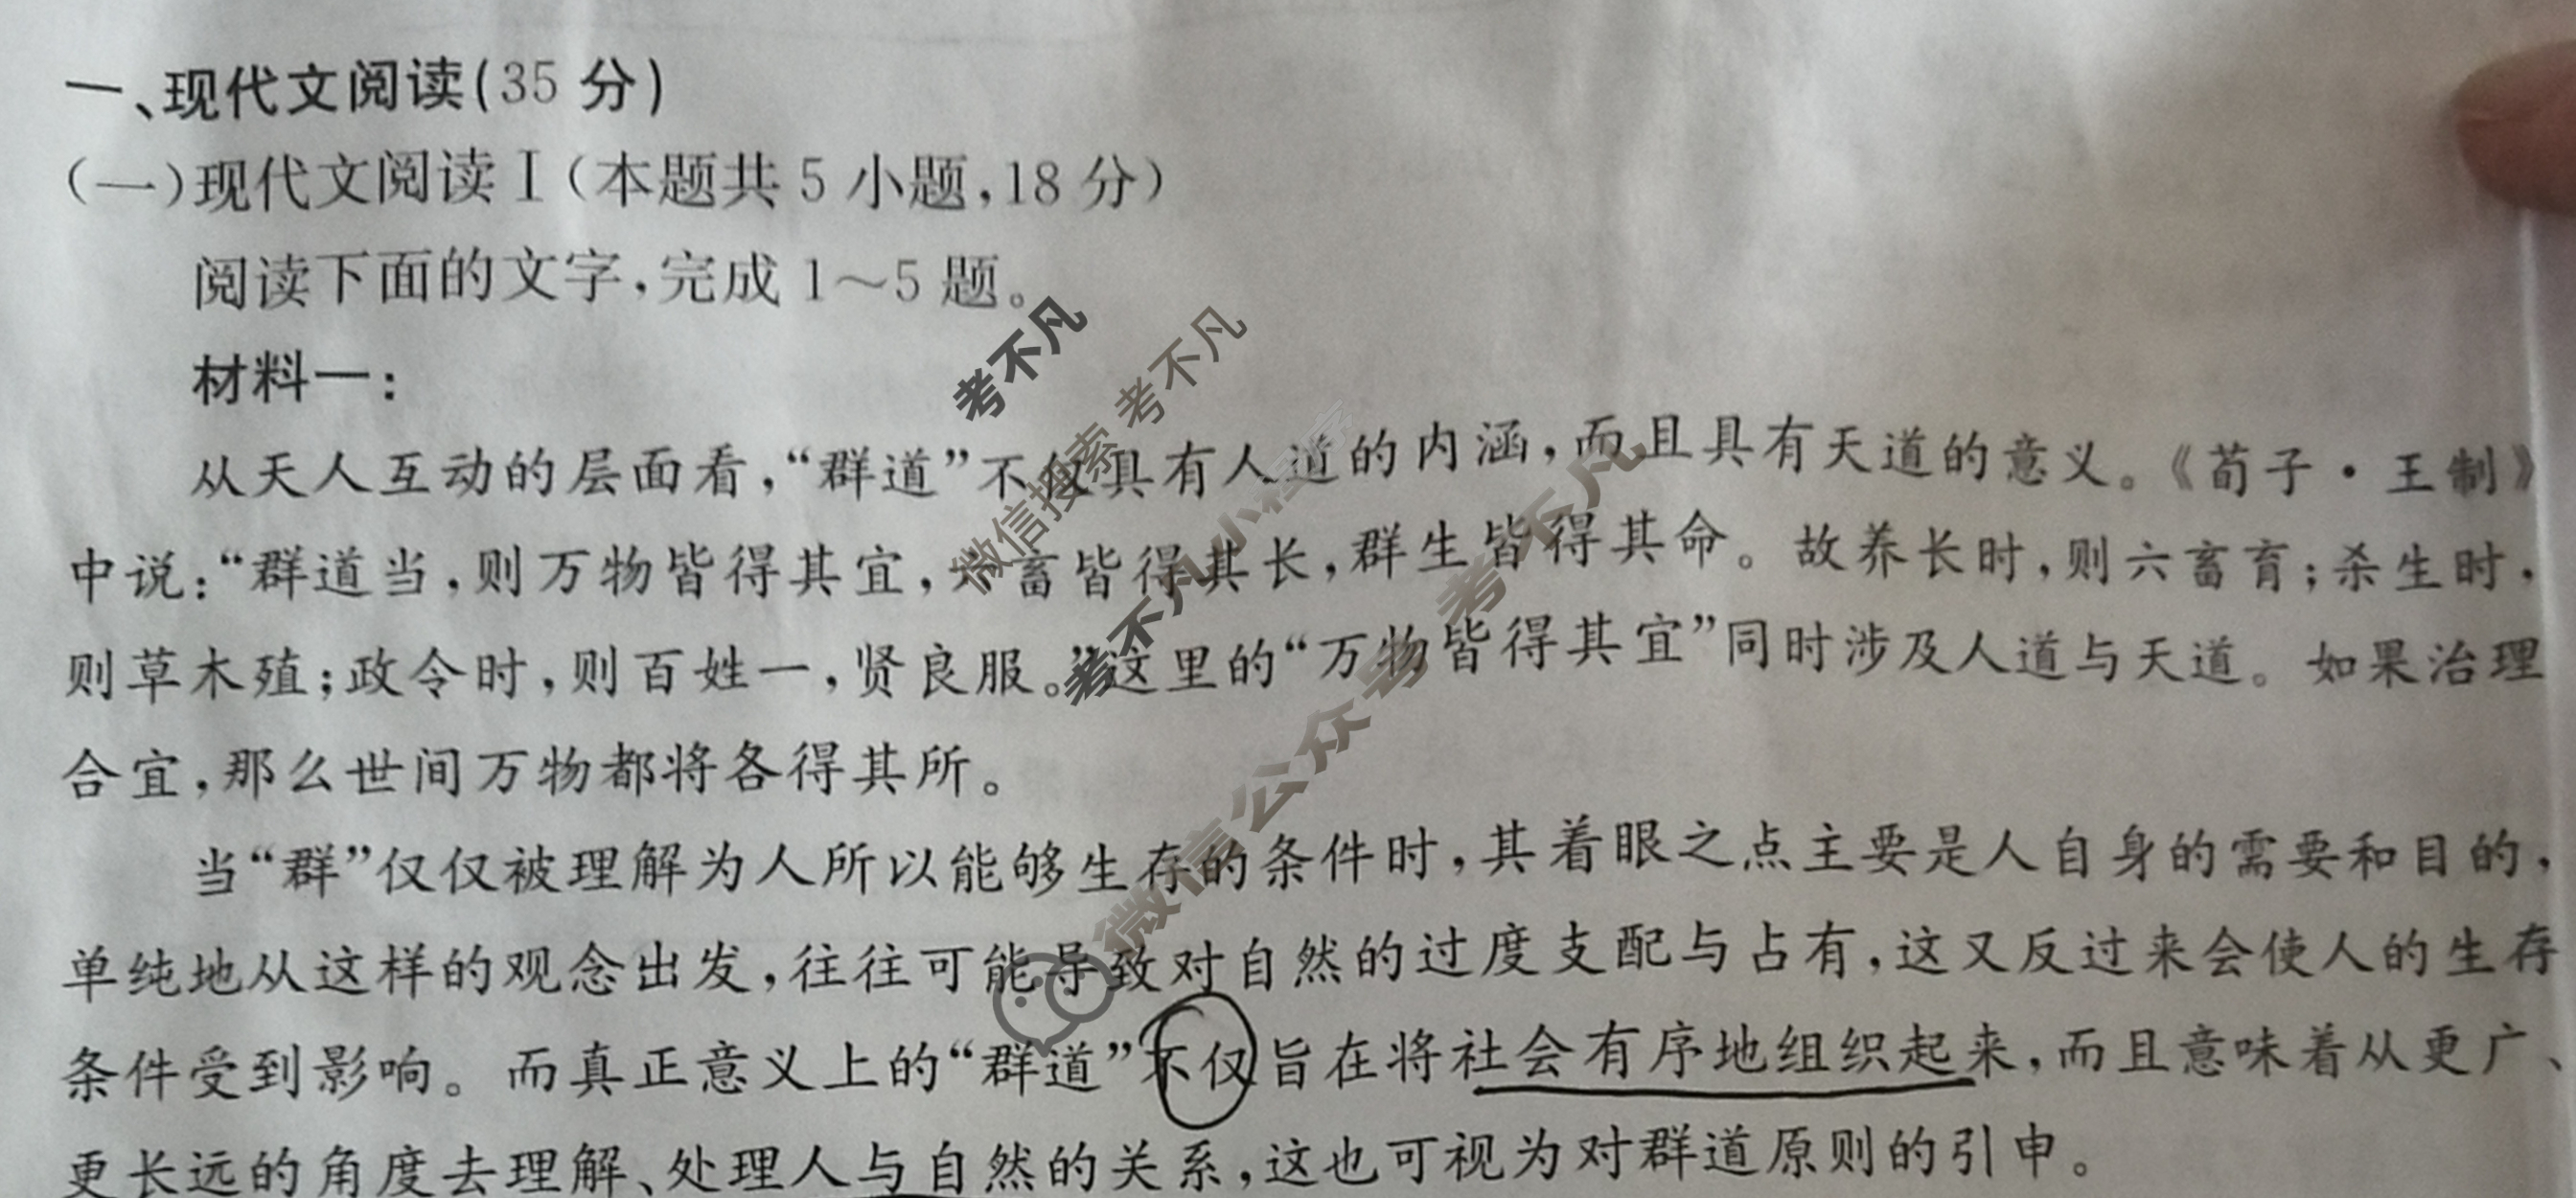 一、现代文阅读(35 分)
(一)现代文阅读Ⅰ(本题共 5 小题,18 分)
阅读下面的文字,完成 1～5 题。
材料一:
从天人互动的层面看,“群道”不仅具有人道的内涵,而且具有天道的意义。《荀子·王制》
中说:“群道当,则万物皆得其宜,六畜皆得其长,群生皆得其命。故养长时,则六畜育;杀生时,
则草木殖;政令时,则百姓一,贤良服。”这里的“万物皆得其宜”同时涉及人道与天道。如果治理
合宜,那么世间万物都将各得其所。
当“群”仅仅被理解为人所以能够生存的条件时,其着眼之点主要是人自身的需要和目的,
单纯地从这样的观念出发,往往可能导致对自然的过度支配与占有,这又反过来会使人的生存
条件受到影响。而真正意义上的“群道”不仅旨在将社会有序地组织起来,而且意味着从更广、
更长远的角度去理解、处理人与自然的关系,这也可视为对群道原则的引申。
考不凡
微信搜索 考不凡
考不凡小程序
微信公众号 考不凡